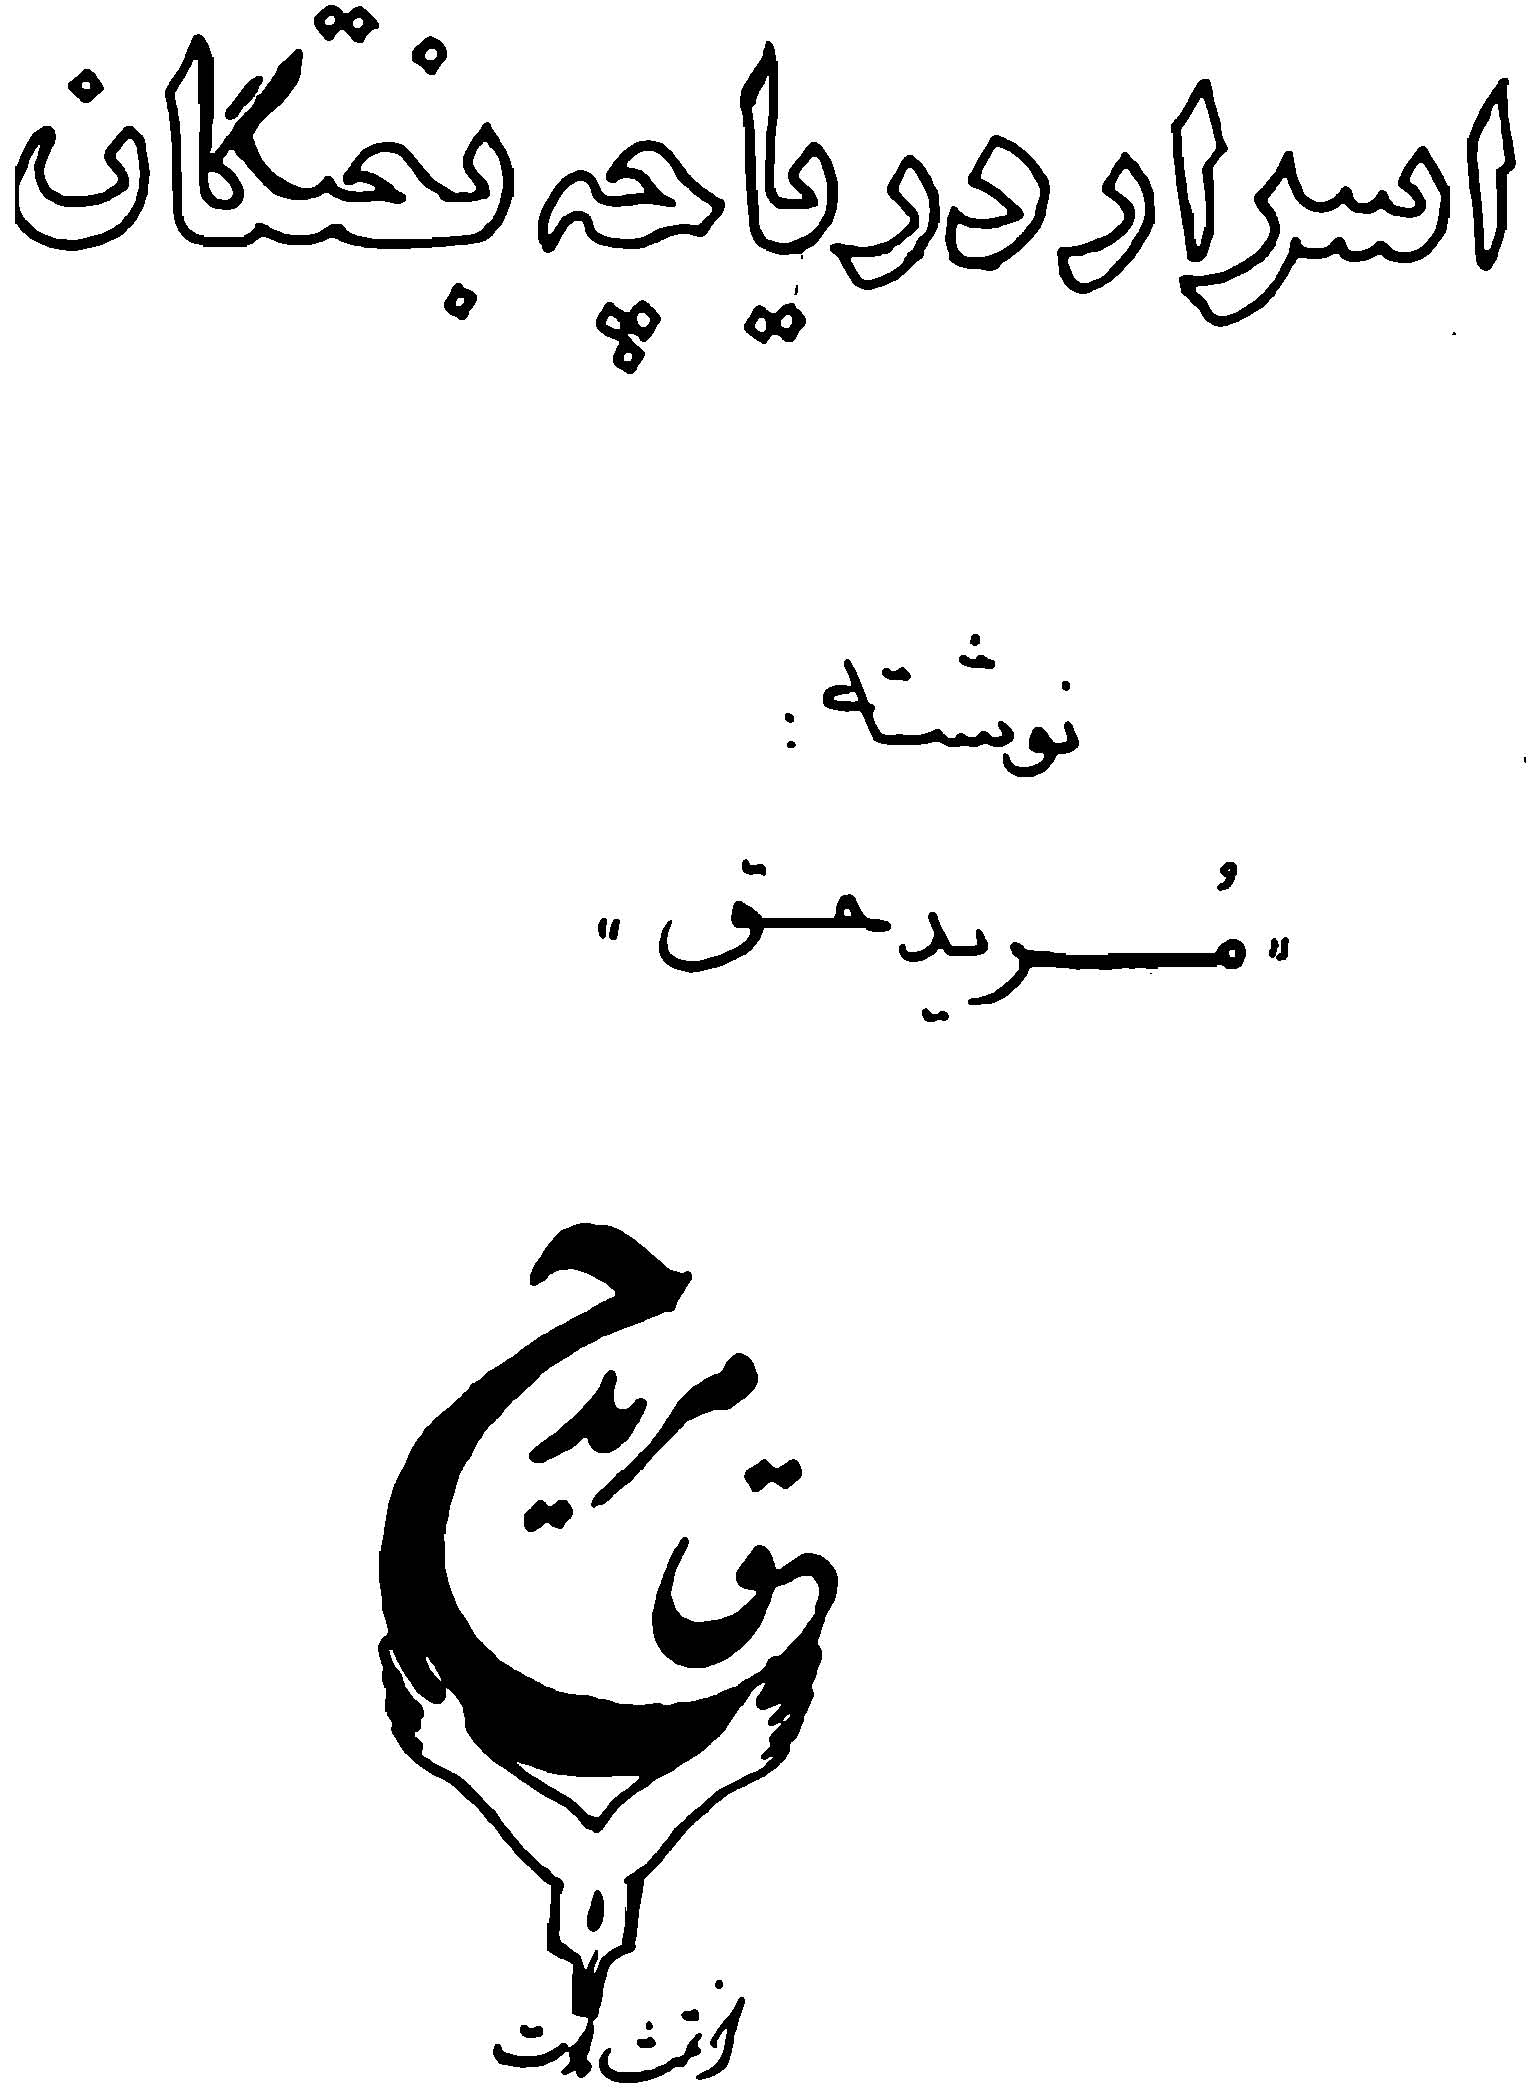 اسرار دریاچه بختگان
نوشته :
"مُرید حق"
مرید حق
انتشارات